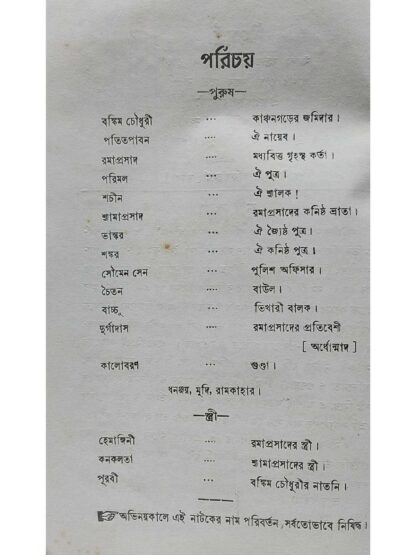 পরিচয়
—পুরুষ—
বঙ্কিম চৌধুরী ... কাঞ্চনগড়ের জমিদার।
পতিতপাবন ... ঐ নায়েব।
রমাপ্রসাদ ... মধ্যবিত্ত গৃহস্থ কর্তা।
পরিমল ... ঐ পুত্র।
শচীন ... ঐ শ্যালক।
শ্যামাপ্রসাদ ... রমাপ্রসাদের কনিষ্ঠ ভ্রাতা।
ভাস্কর ... ঐ জ্যৈষ্ঠ পুত্র।
শঙ্কর ... ঐ কনিষ্ঠ পুত্র।
সৌমেন সেন ... পুলিশ অফিসার।
চৈতন ... বাউল।
বাচ্চু ... ভিখারী বালক।
দুর্গাদাস ... রমাপ্রসাদের প্রতিবেশী
[ অর্ধোন্মাদ ]
কালোবরণ ... গুণ্ডা।
ধনঞ্জয়, মুদি, রামকাহার।
—স্ত্রী—
হেমাঙ্গিনী .... রমাপ্রসাদের স্ত্রী।
কনকলতা .... শ্যামাপ্রসাদের স্ত্রী।
পূরবী ... বঙ্কিম চৌধুরীর নাতনি।
☞ অভিনয়কালে এই নাটকের নাম পরিবর্তন, সর্বতোভাবে নিষিদ্ধ।